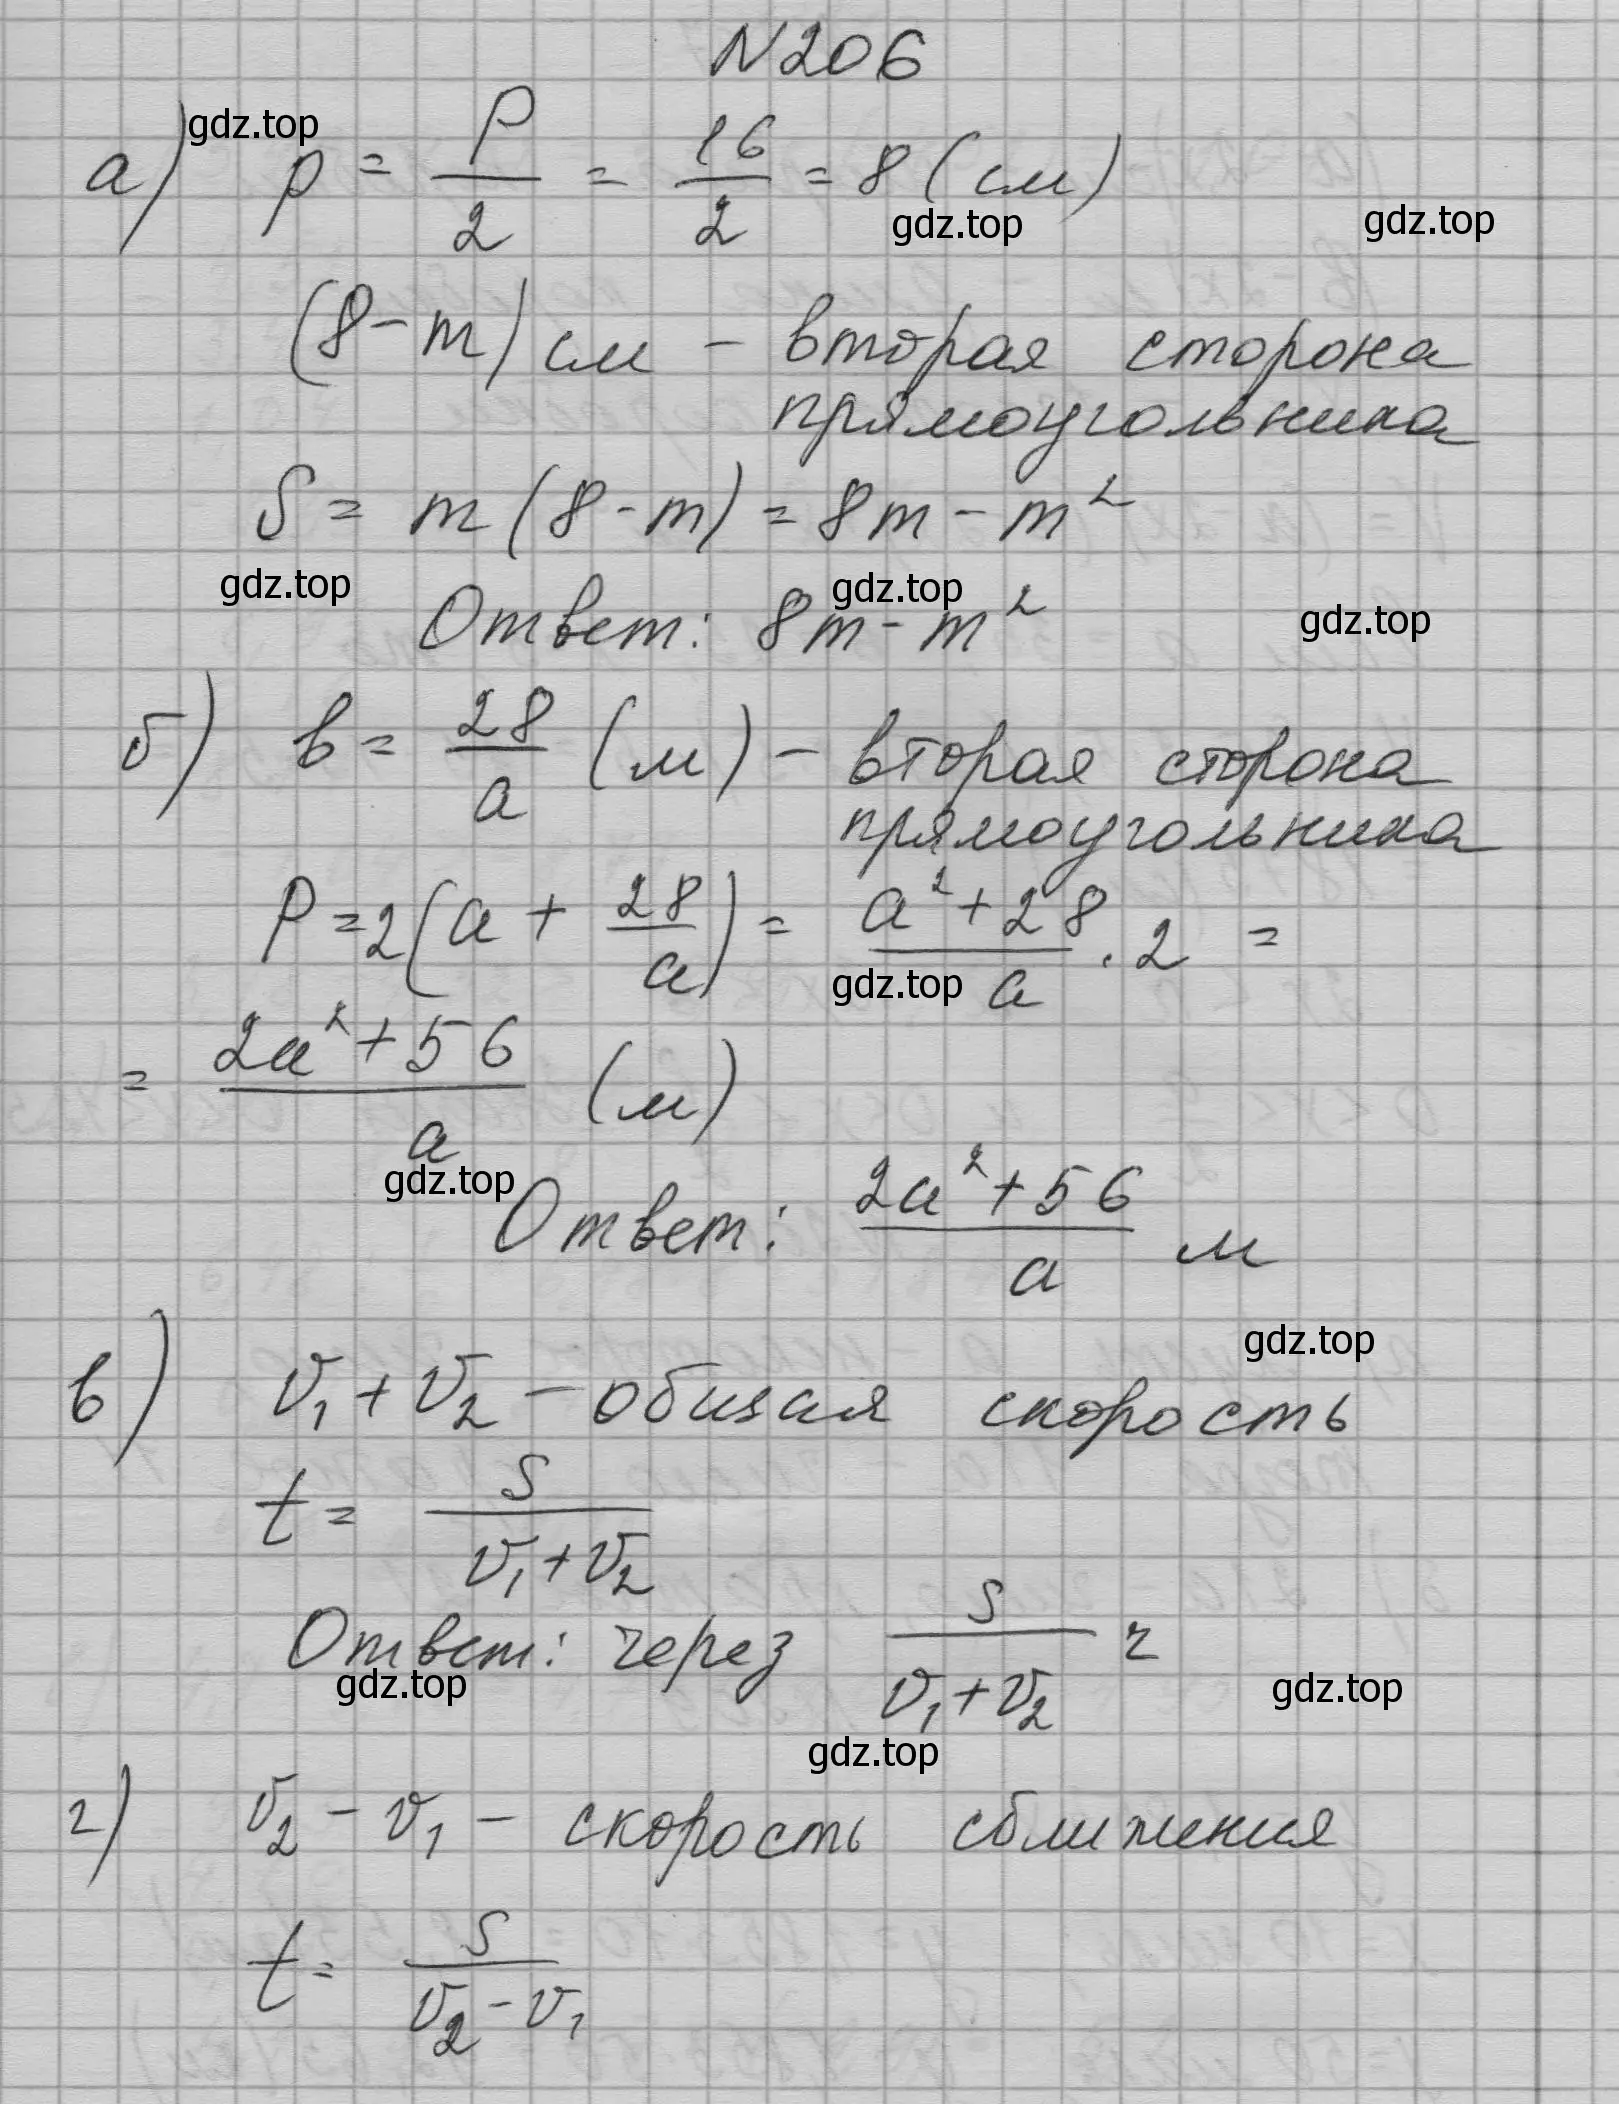 N 206
gdz.top
а) p = P/2 = 16/2 = 8 (см)
gdz.top
gdz.top
(8 - m) см - вторая сторона
прямоугольника
S = m (8 - m) = 8m - m²
gdz.top
gdz.top
Ответ: 8m - m²
gdz.top
б) b = 28/a (м) - вторая сторона
прямоугольника
P = 2(a + 28/a) = (a² + 28)/a · 2 =
gdz.top
= (2a² + 56)/a (м)
gdz.top
Ответ: (2a² + 56)/a м
gdz.top
в) v₁ + v₂ - общая скорость
t = s/(v₁ + v₂)
Ответ: через s/(v₁ + v₂) ч
gdz.top
gdz.top
gdz.top
г) v₂ - v₁ - скорость сближения
t = s/(v₂ - v₁)